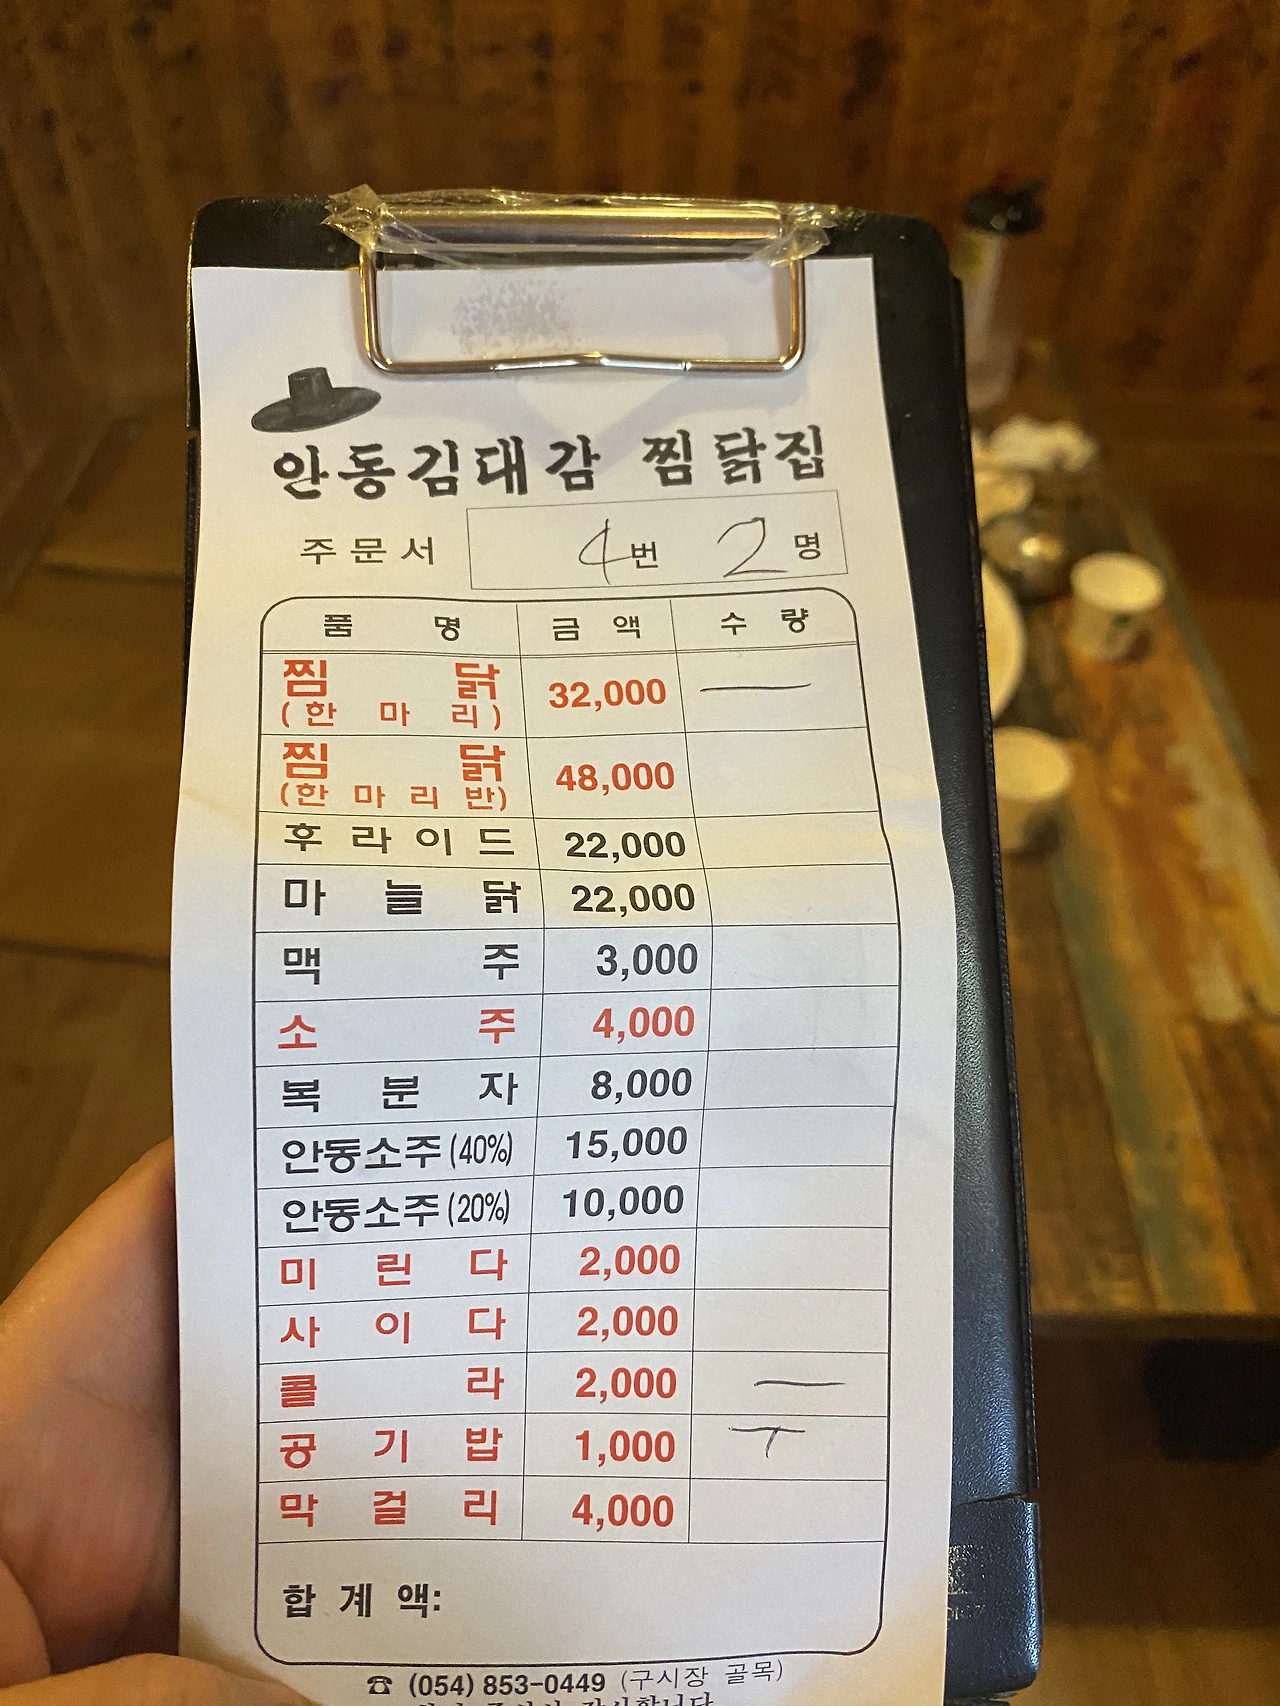 안동김대감 찜닭집
주문서 4번 2명
품명 금액 수량
찜닭 32,000 一
(한마리)
찜닭 48,000
(한마리반)
후라이드 22,000
마늘닭 22,000
맥주 3,000
소주 4,000
복분자 8,000
안동소주(40%) 15,000
안동소주(20%) 10,000
미린다 2,000
사이다 2,000
콜라 2,000 一
공기밥 1,000 ㅜ
막걸리 4,000
합계액:
☎ (054) 853-0449 (구시장 골목)
감사합니다